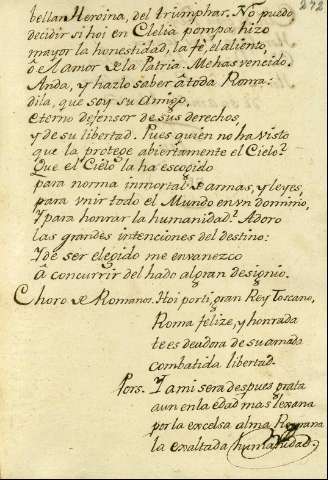 272
bella n Heroina, del triumphar. No puedo
decidir si hoi en Clelia pompa hizo
mayor la honestidad, la fe, el aliento,
ô el amor de la Patria. Me has vencido.
Anda, y hazlo saber â toda Roma:
dila, que soy su Amigo,
eterno defensor de sus derechos,
y de su libertad. Pues quièn no ha visto
que la protege abiertamente el Cielo?
Que el Cielo la ha escogido
para norma inmortal de armas, y leyes,
para vnir todo el Mundo en vn dominio,
Y para honrar la humanidad? Adoro
las grandes intenciones del destino:
Y de ser elegido me envanezco
â concurrir del hado al gran designio.
Choro de Romanos. Hoi por ti, gran Rey Toscano,
Roma felize, y honrada
te es deudora de su amada
combatida libertad.
Pors. Y a mi serà despues grata
aun en la edad mas lexana
por la excelsa alma Romana
la exaltada humanidad.